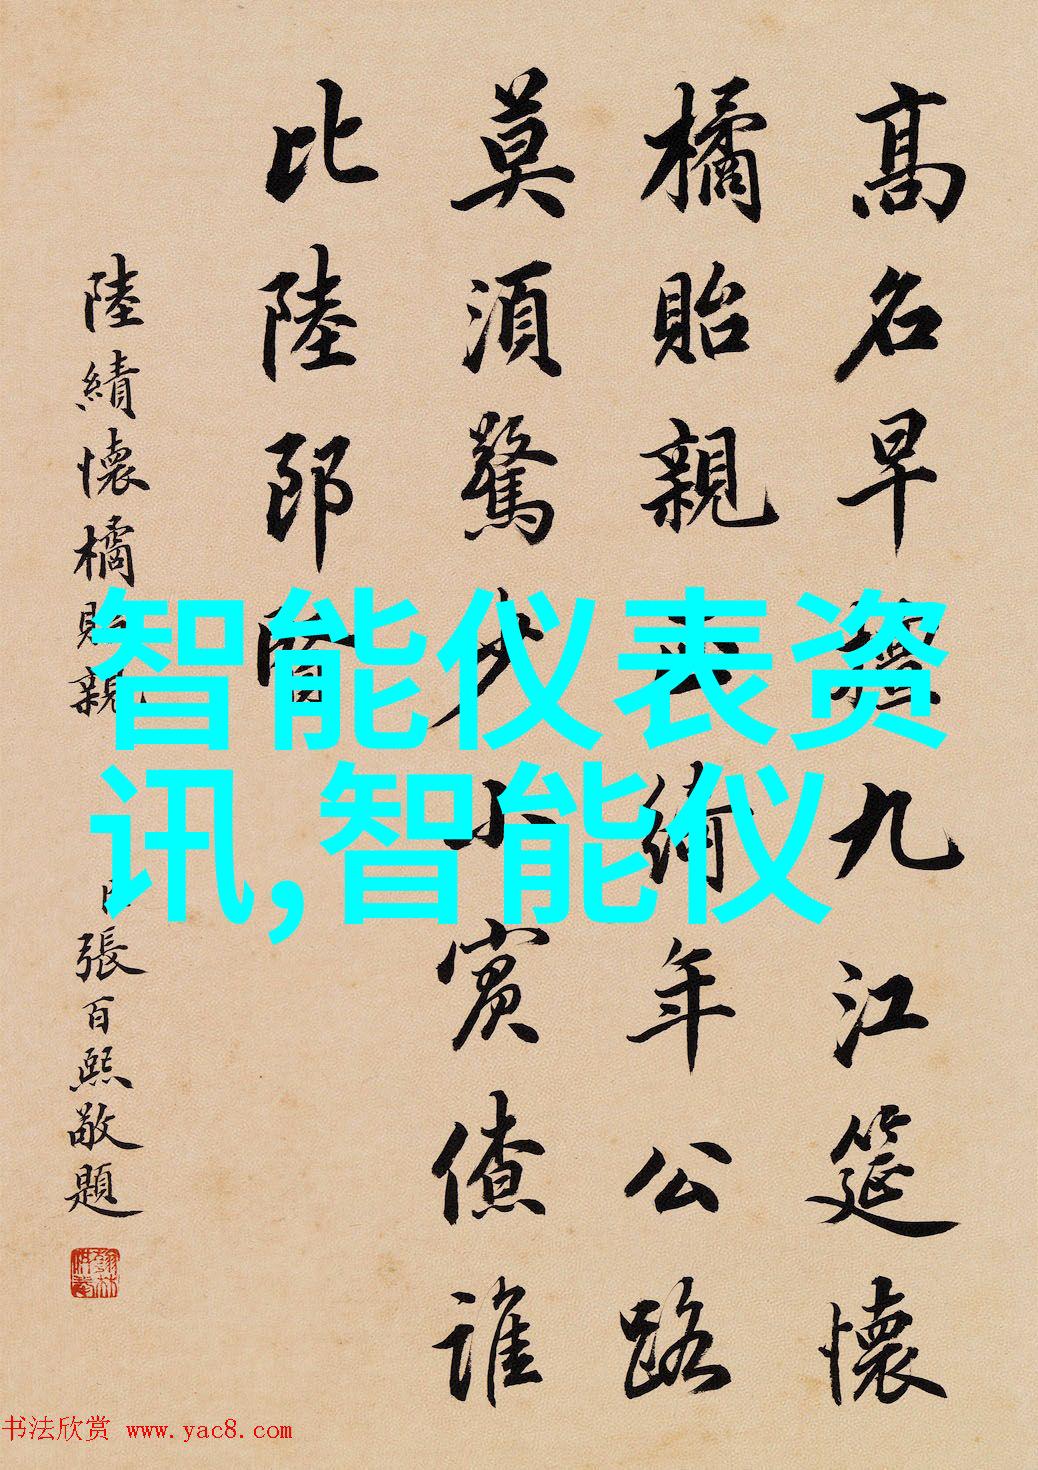 高名早九江筵懷
橘貽親綺年公路
莫須驚少小賓僚誰
比陸郎
陸績懷橘貽親
臣張百熙敬題
智能仪表资
讯,智能仪
书法欣赏 www.yac8.com